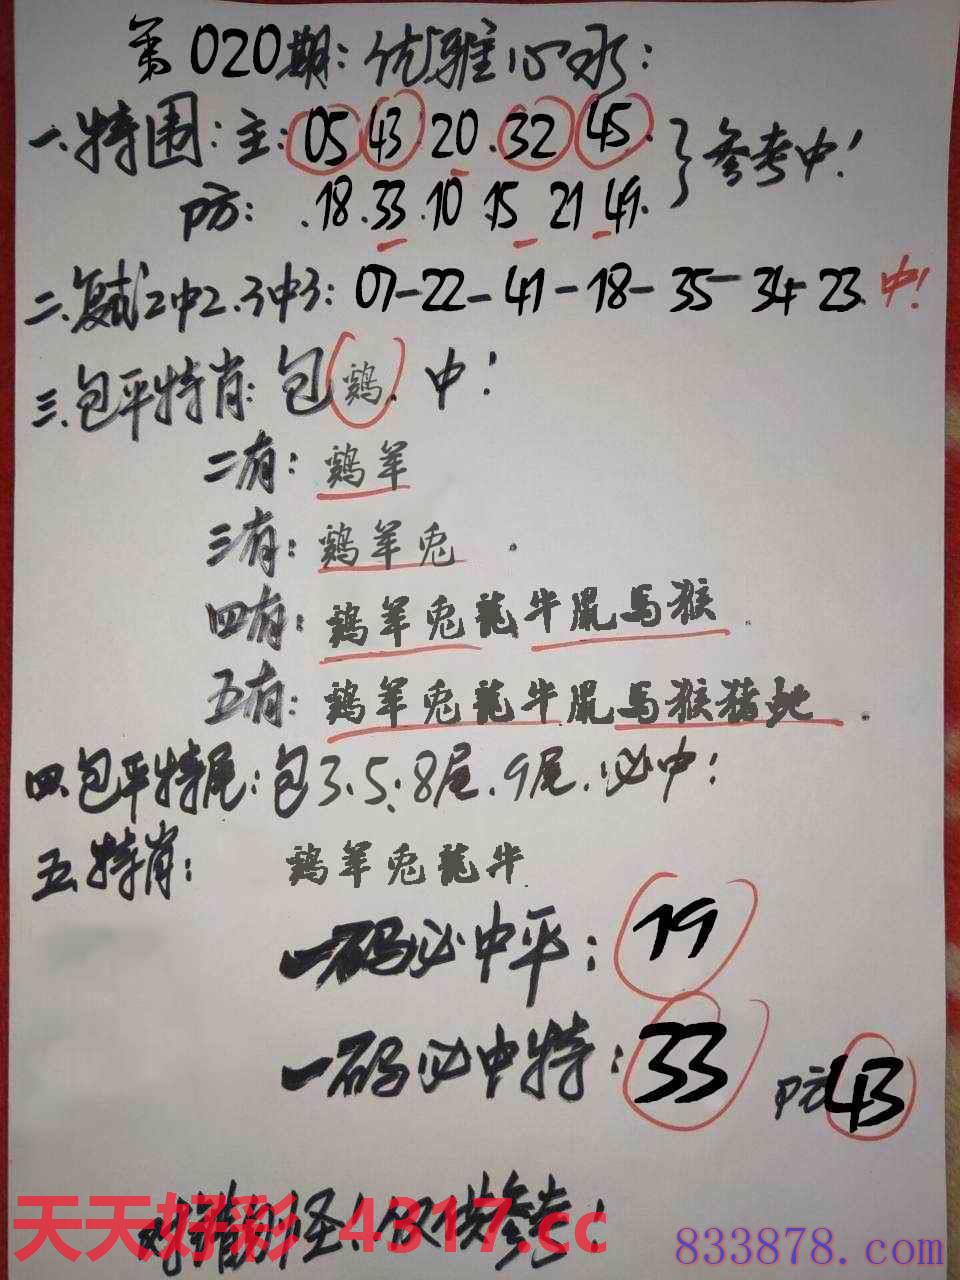 第020期:优雅心水:
一.特围:主:05 43 20.32 45.
防: .18.33.10 15 21 49.
参考中!
二.复式2中2.3中3:07-22-41-18-35-34-23.中!
三.包平特肖:包鷄.中!
二有:鷄羊
三有:鷄羊兎.
四有:鷄羊兎龍牛鼠马猴.
五有:鷄羊兎龍牛鼠马猴猪蛇.
四.包平特尾:包3.5:8尾.9尾.必中!
五.特肖:鷄羊兎龍牛.
一码必中平:19
一码必中特:33 防43
对错别怪!仅供参考!
天天好彩 4317.cc
833878.com